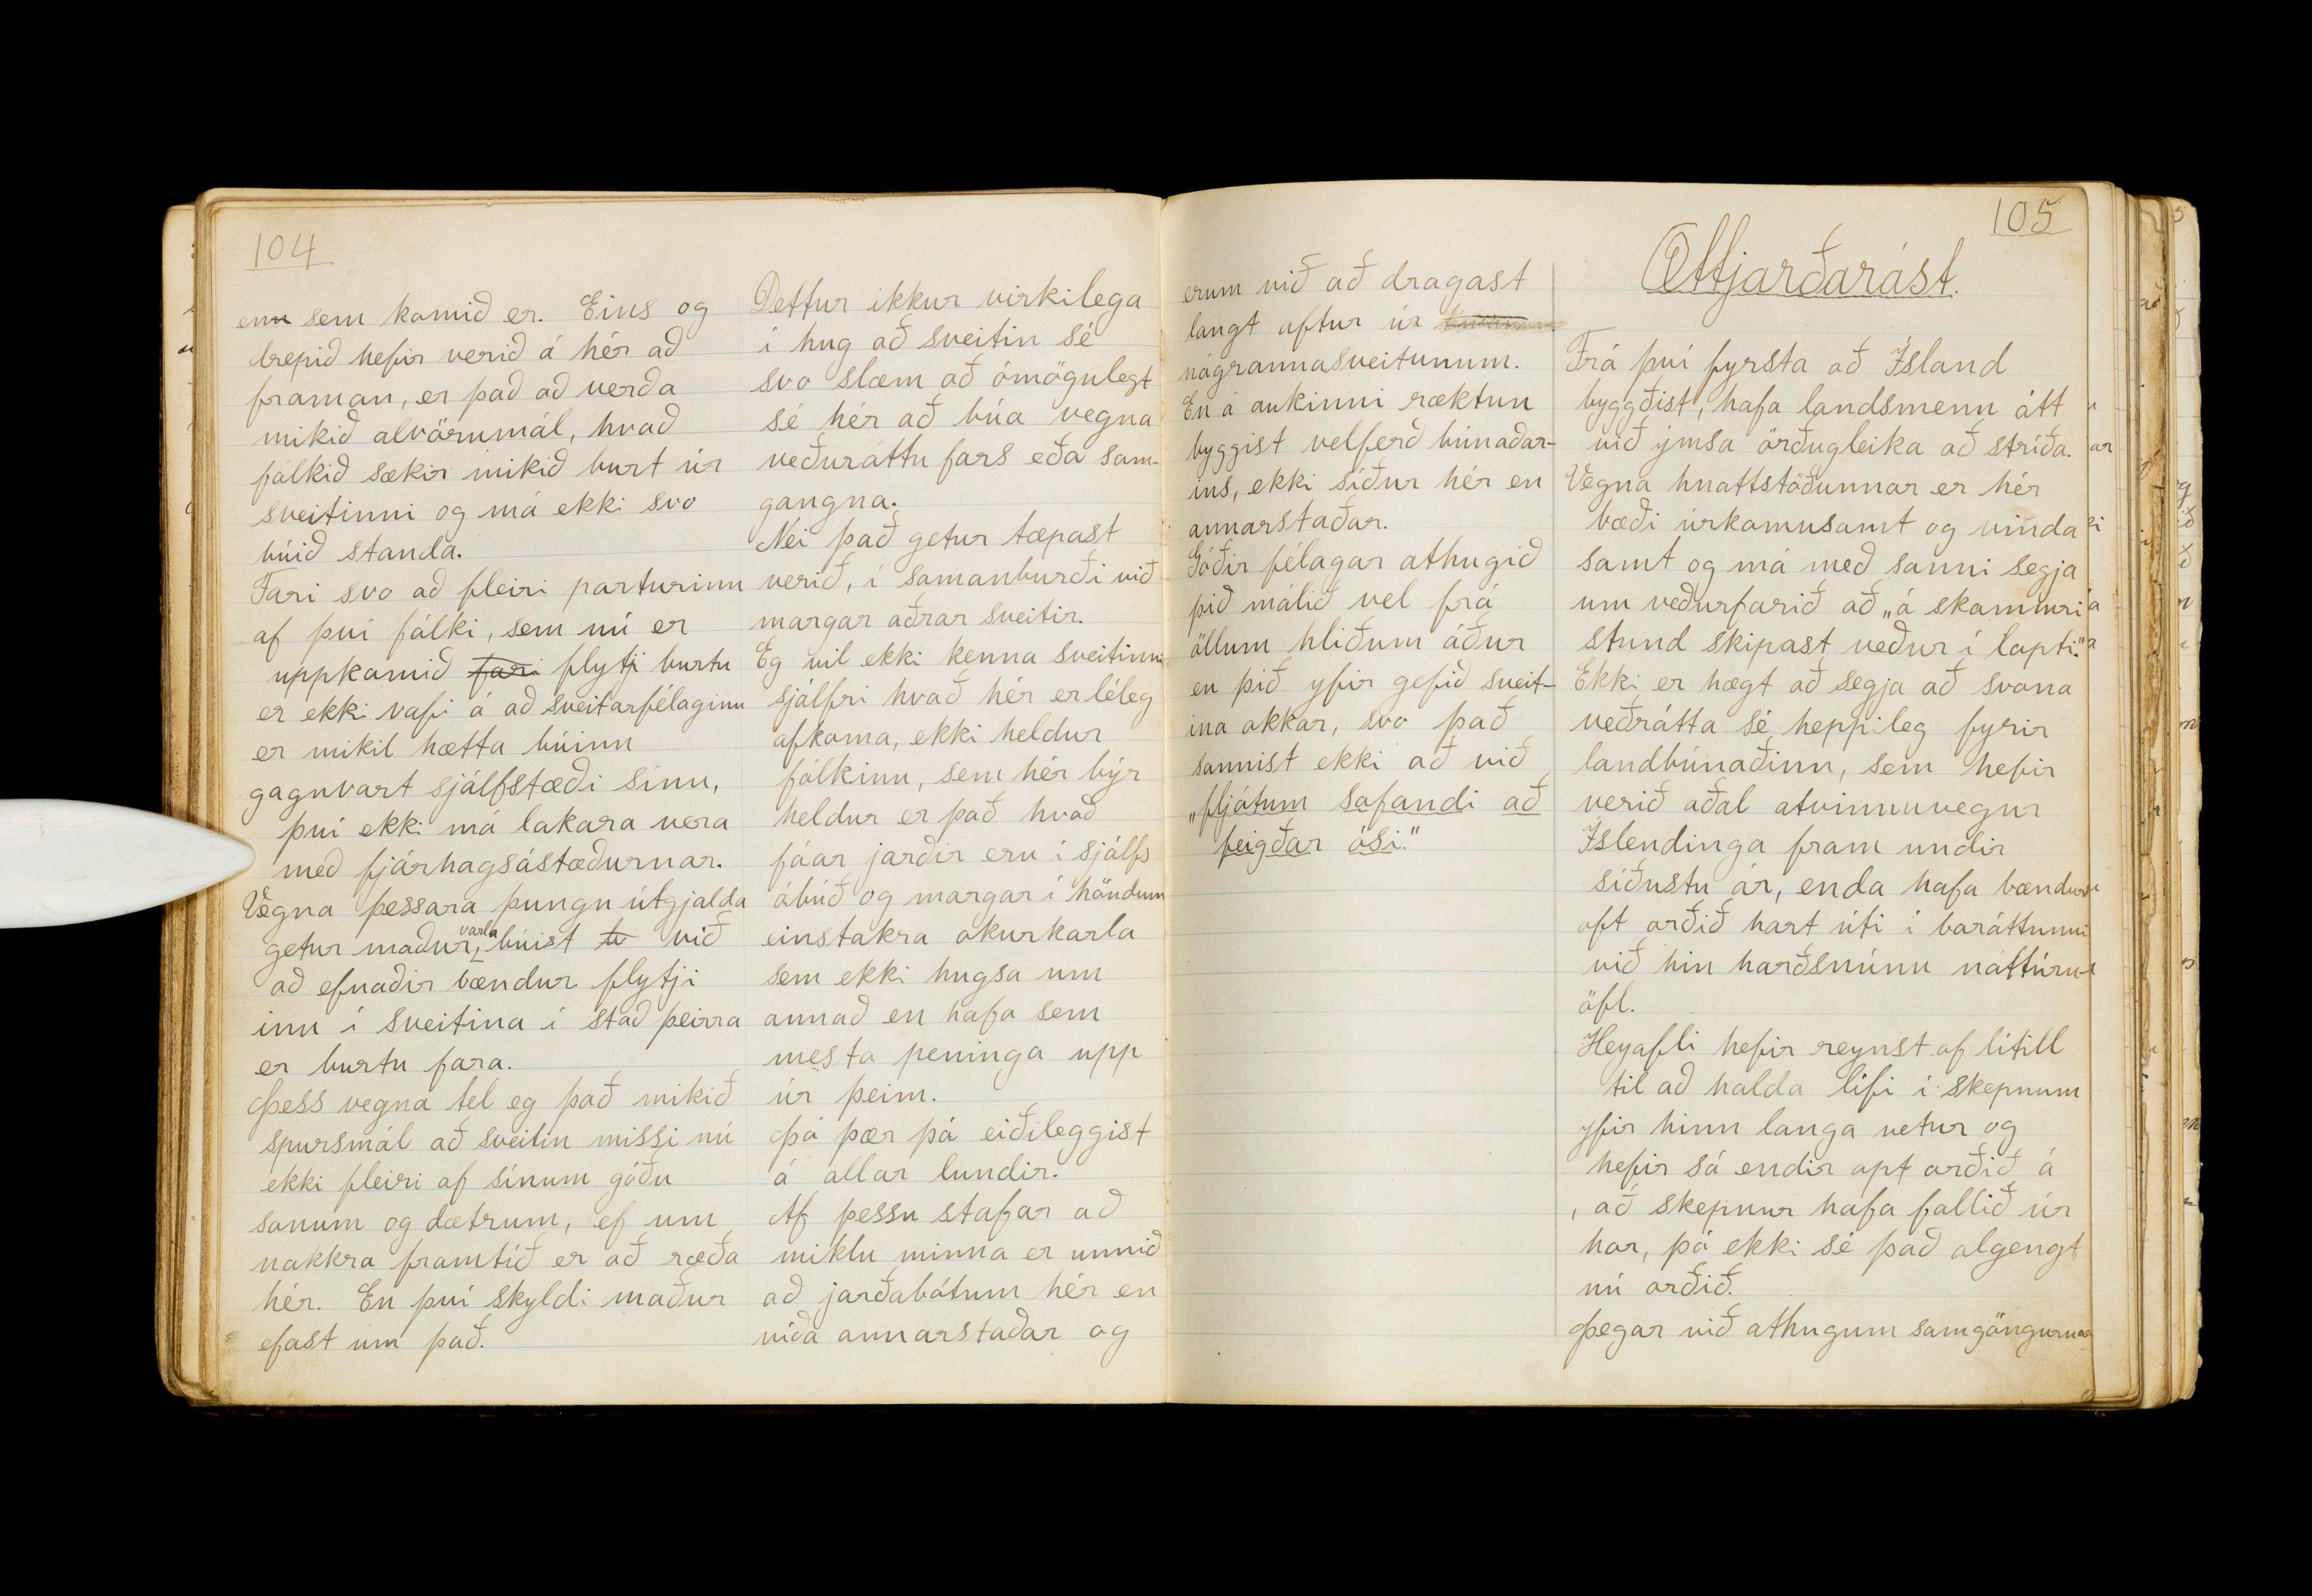 104
enn sem komið er. Eins og
drepið hefir verið á hér að
framan, er það að verða
mikið alvörumál, hvað
fólkið sækir mikið burt úr
sveitinni og má ekki svo
búið standa.
Fari svo að fleiri parturinn
af því fólki, sem nú er
uppkomið fari flytji burtu
er ekki vafi á að sveitarfélaginu
er mikil hætta búinn
gagnvart sjálfstæði sínu,
því ekki má lakara vera
með fjárhagsástæðurnar.
Vegna þessara þungu útgjalda
getur maður varla búist við
að efnaðir bændur flytji
inn í sveitina í stað þeirra
er burtu fara.
Þess vegna tel eg það mikið
spursmál að sveitin missi nú
ekki fleiri af sínum góðu
sonum og dætrum, ef um
nokkra framtíð er að ræða
hér. En því skyldi maður
efast um það.
Dettur ikkur virkilega
í hug að sveitin sé
svo slæm að ómögulegt
sé hér að búa vegna
veðuráttu fars eða sam-
gangna.
Nei það getur tæpast
verið, í samanburði við
margar aðrar sveitir.
Eg vil ekki kenna sveitinni
sjálfri hvað hér er léleg
afkoma, ekki heldur
fólkinu, sem hér býr
heldur er það hvað
fáar jarðir eru í sjálfs
ábúð og margar í höndum
einstakra okurkarla
sem ekki hugsa um
annað en hafa sem
mesta peninga upp
úr þeim.
Þó þær þá eiðileggist
á allar lundir.
Af þessu stafar að
miklu minna er unnið
að jarðabótum hér en
víða annarstaðar og
erum við að dragast
langt aftur úr
nágrannasveitunum.
En á aukinni ræktun
byggist velferð búnaðar-
ins, ekki síður hér en
annarstaðar.
Góðir félagar athugið
þið málið vel frá
öllum hliðum áður
en þið yfir gefið sveit-
ina okkar, svo það
sannist ekki að við
„fljótum sofandi að
feigðar ósi."
105
Ættjarðarást.
Frá því fyrsta að Ísland
byggðist, hafa landsmenn átt
við ýmsa örðugleika að stríða.
Vegna hnattstöðunnar er hér
bæði úrkomusamt og vinda
samt og má með sanni segja
um veðurfarið að „á skammri
stund skipast veður í lopti."
Ekki er hægt að segja að svona
veðrátta sé heppileg fyrir
landbúnaðinn, sem hefir
verið aðal atvinnuvegur
Íslendinga fram undir
síðustu ár, enda hafa bændur
oft orðið hart úti í baráttunni
við hin harðsnúnu náttúru-
öfl.
Heyafli hefir reynst of lítill
til að halda lífi í skepnum
yfir hinn langa vetur og
hefir sá endir opt orðið á
, að skepnur hafa fallið úr
hor, þó ekki sé það algengt
nú orðið.
Þegar við athugum samgöngurnar